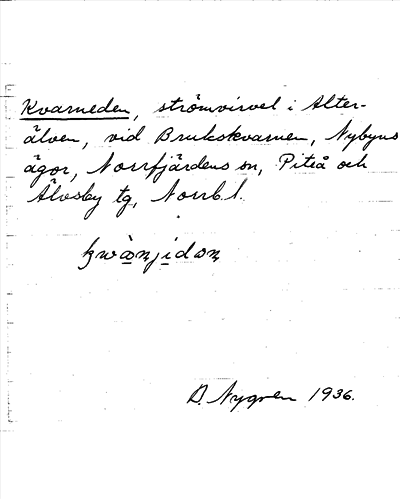 Kvarneden, strömvirvel i Alter-
älven, vid Brukskvarnen, Nybyns
ägor, Norrfjärdens sn, Piteå och
Älvsby tg, Norrb. l.
D. Nygren 1936.